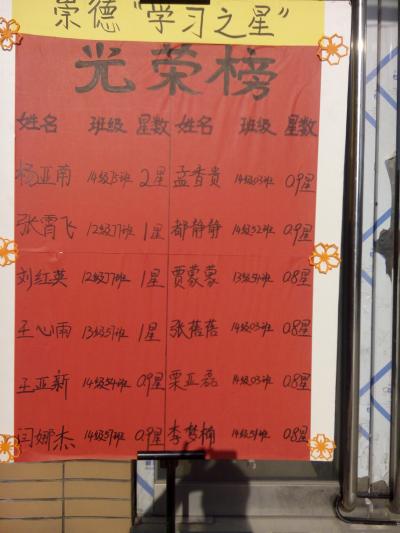 崇德“学习之星”
光荣榜
姓名 班级 星数 姓名 班级 星数
杨亚南 14级15班 2星 孟香贵 14级03班 0.9星
张霄飞 12级17班 1星 都静静 14级52班 0.9星
刘红英 12级17班 1星 贾蒙蒙 13级51班 0.8星
王心雨 13级57班 1星 张蓓蓓 14级03班 0.8星
王亚新 14级54班 0.9星 栗亚磊 14级03班 0.8星
闫娜杰 14级57班 0.9星 李梦楠 14级51班 0.8星